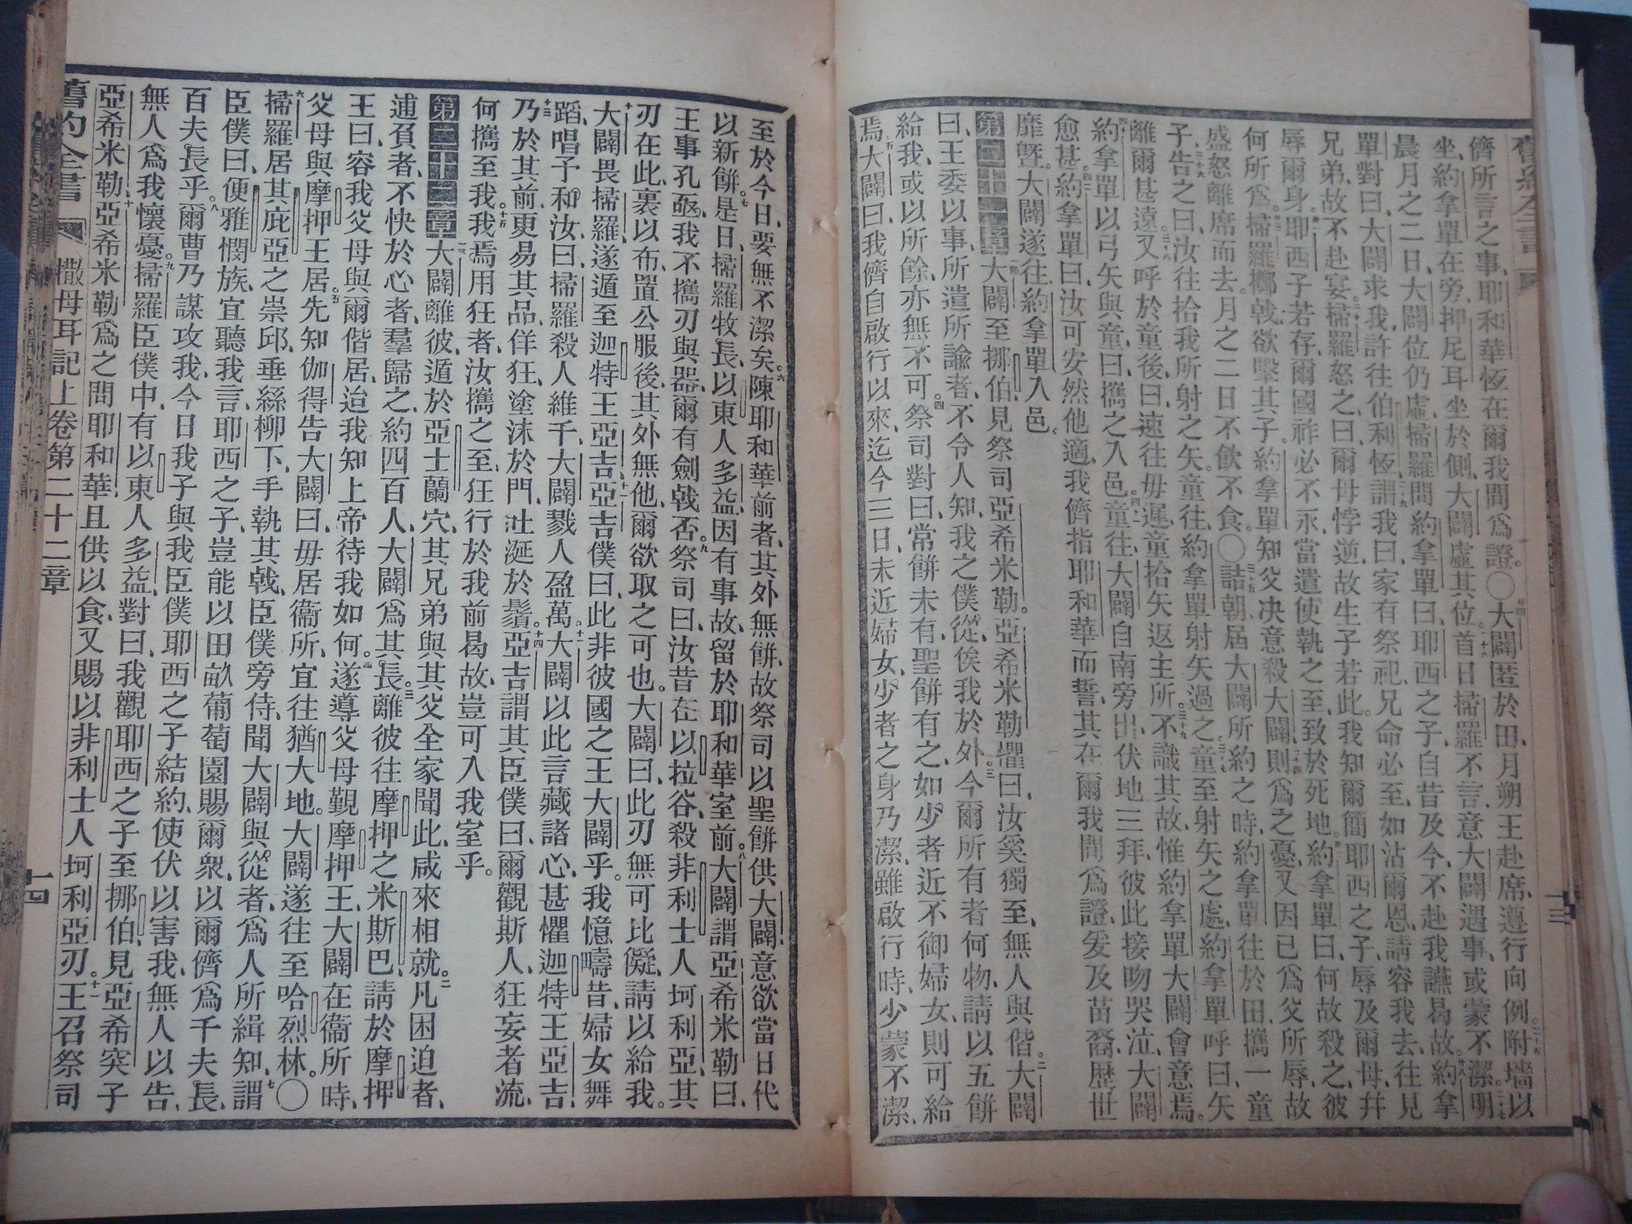 儕所言之事耶和華恆在爾我間爲證〇大闢匿於田月朔王赴席遵行向例附墻以
坐約拿單在旁押尼耳坐於側大闢虛其位首日掃羅不言意大闢遇事或蒙不潔明
晨月之二日大闢位仍虛掃羅問約拿單曰耶西之子自昔及今不赴我讌曷故約拿
單對曰大闢求我許往伯利恆謂我曰家有祭祀兄命必至如沾爾恩請容我去往見
兄弟故不赴宴掃羅怒之曰爾母悖逆故生子若此我知爾簡耶西之子辱及爾母幷
辱爾身耶西子若存爾國祚必不永當遣使執之至致於死地約拿單曰何故殺之彼
何所爲掃羅擲戟欲擊其子約拿單知父决意殺大闢則爲之憂又因已爲父所辱故
盛怒離席而去月之二日不飲不食〇詰朝屆大闢所約之時約拿單往於田攜一童
子告之曰汝往拾我所射之矢童往約拿單射矢過之童至射矢之處約拿單呼曰矢
離爾甚遠又呼於童後曰速往毋遲童拾矢返主所不識其故惟約拿單大闢會意焉
約拿單以弓矢與童曰攜之入邑童往大闢自南旁出伏地三拜彼此接吻哭泣大闢
愈甚約拿單曰汝可安然他適我儕指耶和華而誓其在爾我間爲證爰及苗裔歷世
靡曁大闢遂往約拿單入邑
第二十一章大闢至挪伯見祭司亞希米勒亞希米勒懼曰汝奚獨至無人與偕大闢
曰王委以事所遣所諭者不令人知我之僕從俟我於外今爾所有者何物請以五餅
給我或以所餘亦無不可祭司對曰常餅未有聖餅有之如少者近不御婦女則可給
焉大闢曰我儕自啟行以來迄今三日未近婦女少者之身乃潔雖啟行時少蒙不潔
至於今日要無不潔矣陳耶和華前者其外無餅故祭司以聖餅供大闢意欲當日代
以新餅是日掃羅牧長以東人多益因有事故留於耶和華室前大闢謂亞希米勒曰
王事孔亟我不攜刃與器爾有劍戟否祭司曰汝昔在以拉谷殺非利士人坷利亞其
刃在此裹以布置公服後其外無他爾欲取之可也大闢曰此刃無可比儗請以給我
大闢畏掃羅遂遁至迦特王亞吉亞吉僕曰此非彼國之王大闢乎我憶疇昔婦女舞
蹈唱予和汝曰掃羅殺人維千大闢戮人盈萬大闢以此言藏諸心甚懼迦特王亞吉
乃於其前更易其品佯狂塗沫於門吐涎於鬚亞吉謂其臣僕曰爾觀斯人狂妄者流
何攜至我我焉用狂者汝攜之至狂行於我前曷故豈可入我室乎
第二十二章大闢離彼遁於亞土蘭穴其兄弟與其父全家聞此咸來相就凡困迫者
逋負者不快於心者羣歸之約四百人大闢爲其長離彼往摩押之米斯巴請於摩押
王曰容我父母與爾偕居迨我知上帝待我如何遂導父母覲摩押王大闢在衞所時
父母與摩押王居先知伽得告大闢曰毋居衞所宜往猶大地大闢遂往至哈烈林〇
掃羅居其庇亞之崇邱垂絲柳下手執其戟臣僕旁侍聞大闢與從者爲人所緝知謂
臣僕曰便雅憫族宜聽我言耶西之子豈能以田畝葡萄園賜爾衆以爾儕爲千夫長
百夫長乎爾曹乃謀攻我今日我子與我臣僕耶西之子結約使伏以害我無人以告
無人爲我懷憂掃羅臣僕中有以東人多益對曰我觀耶西之子至挪伯見亞希突子
亞希米勒亞希米勒爲之問耶和華且供以食又賜以非利士人坷利亞刃王召祭司
舊約全書 撒母耳記上卷第二十二章 十四